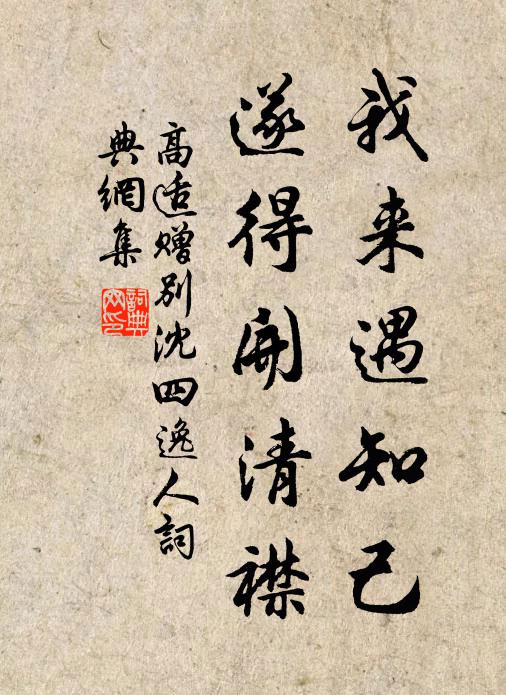 我来遇知己
遂得開清襟
高适赠别沈四逸人詞
典網集
詞典网印